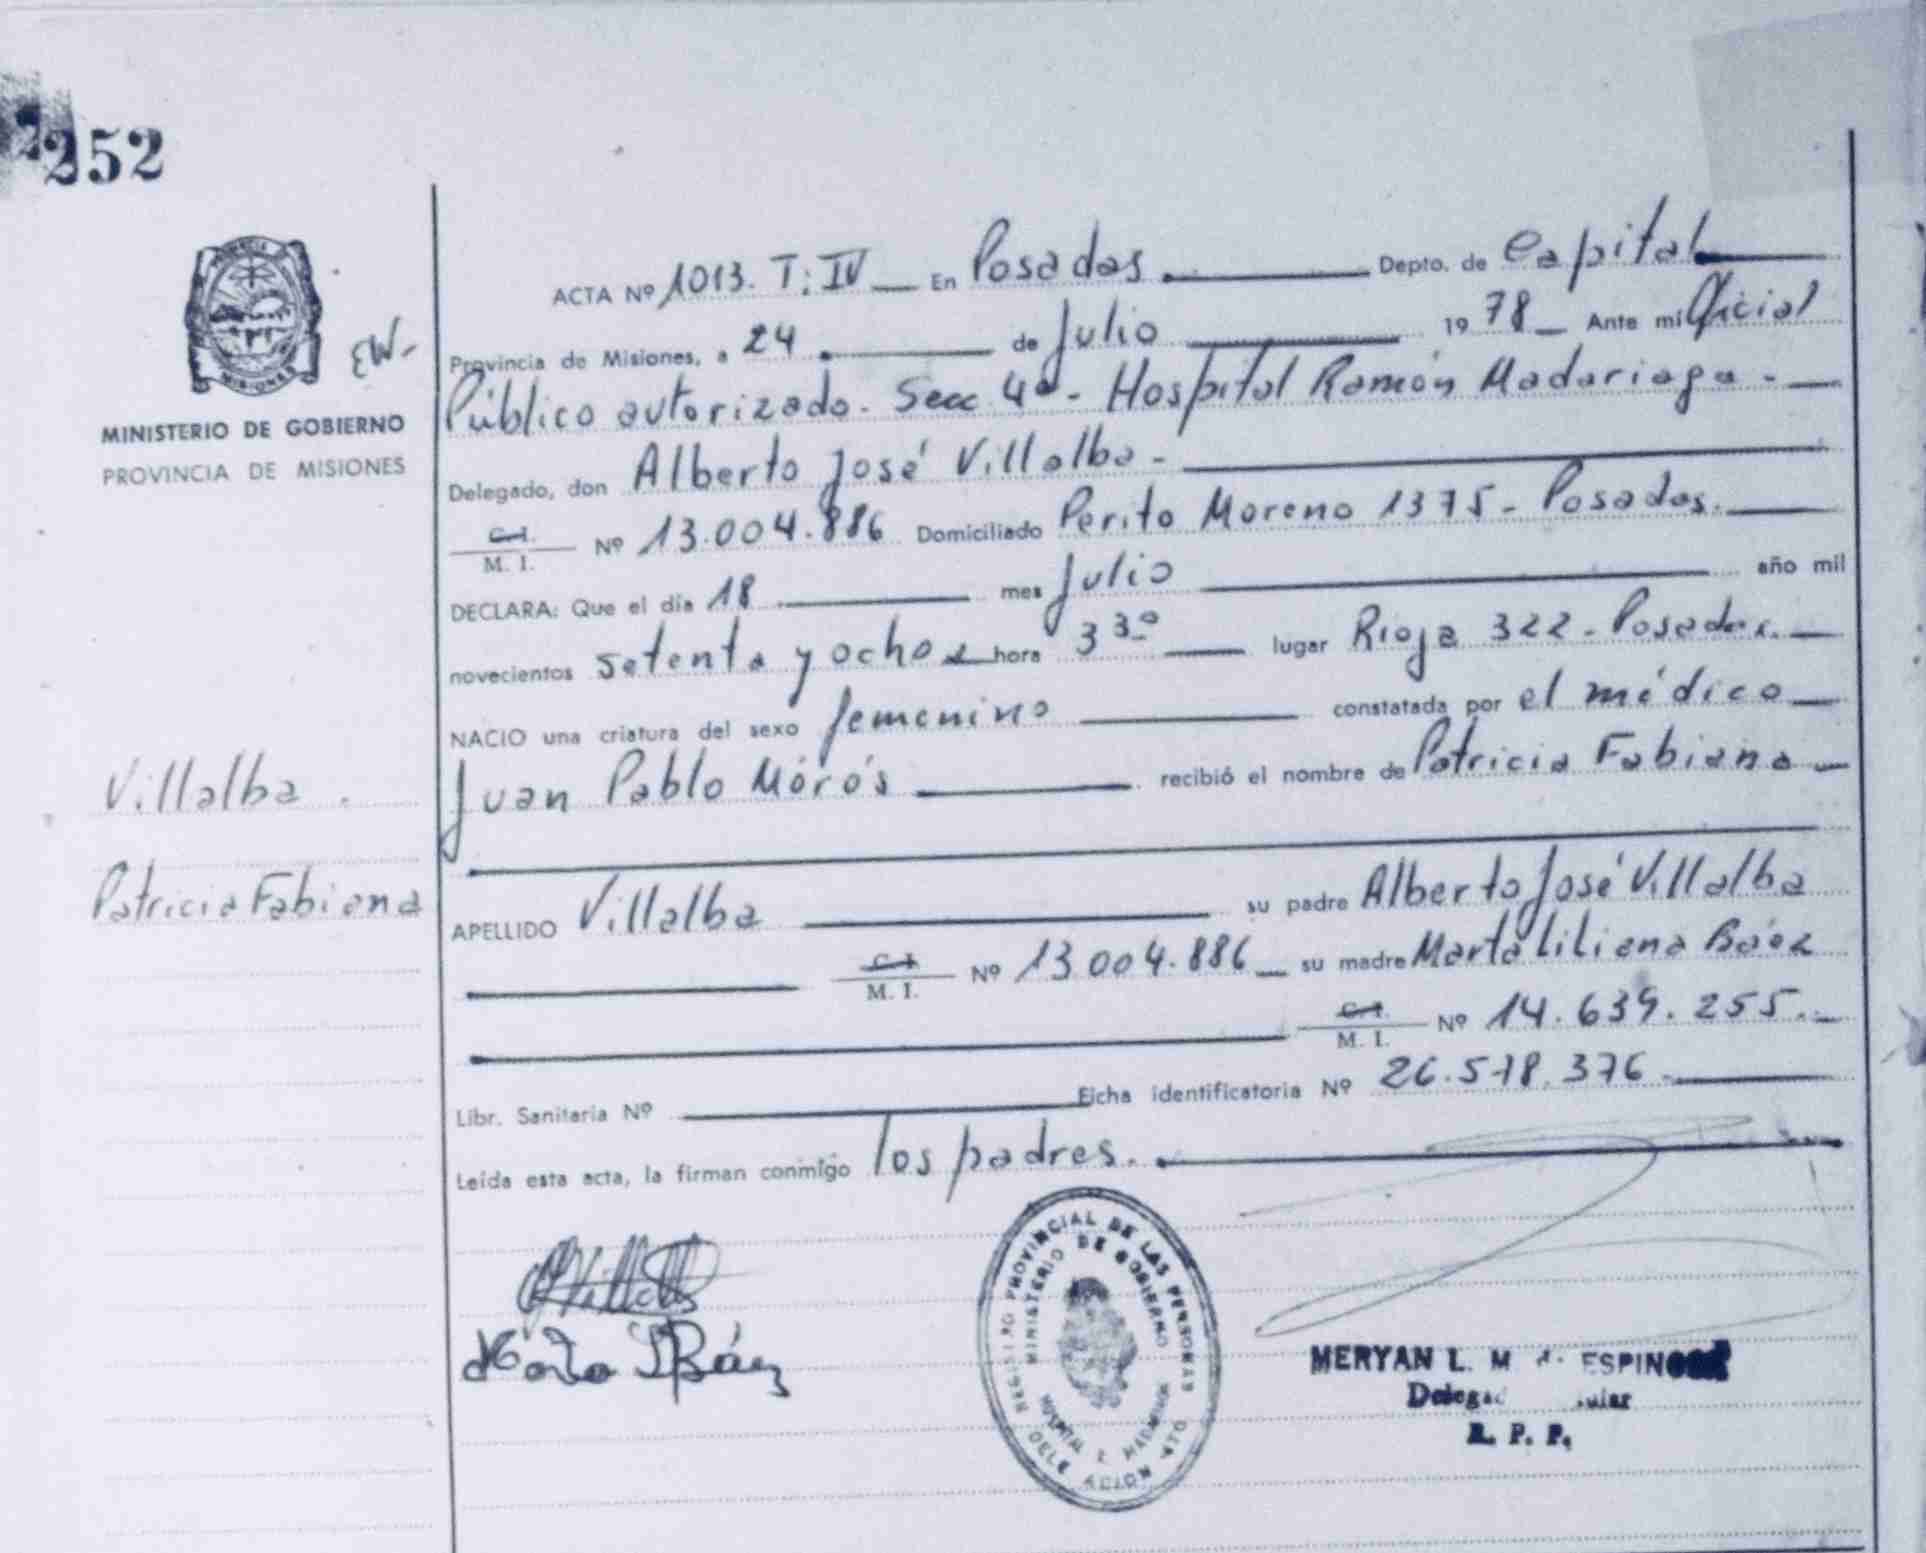 252
MINISTERIO DE GOBIERNO
PROVINCIA DE MISIONES
EW-
ACTA Nº 1013. T: IV En Posadas Depto. de Capital
Provincia de Misiones, a 24 de Julio 1978 Ante mi Oficial
Público autorizado. Secc 4ª - Hospital Ramón Madariaga -
Delegado, don Alberto José Villalba -
C. I.
M. I. Nº 13.004.886 Domiciliado Perito Moreno 1375 - Posadas.
DECLARA: Que el día 18 mes Julio año mil
novecientos setenta y ocho hora 3 30 lugar Rioja 322 - Posadas.
NACIO una criatura del sexo femenino constatada por el médico
Juan Pablo Morós recibió el nombre de Patricia Fabiana
Villalba.
Patricia Fabiana
APELLIDO Villalba su padre Alberto José Villalba
C. I.
M. I. Nº 13.004.886 su madre Marta Liliana Báez
C. I.
M. I. Nº 14.639.255.
Libr. Sanitaria Nº Ficha identificatoria Nº 26.578.376.
Leída esta acta, la firman conmigo los padres.
REGISTRO PROVINCIAL DE LAS PERSONAS
MINISTERIO DE GOBIERNO
HOSPITAL R. MADARIAGA
MERYAN L. M
R. P. P.